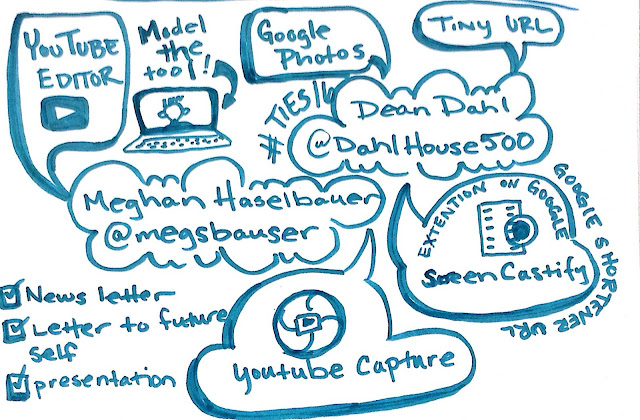 YouTube
EDITOR
Model
the
tool!
Google
Photos
Tiny URL
#TIES16
Dean Dahl
@DahlHouse500
Meghan Haselbauer
@megsbauser
EXTENTION ON GOOGLE
ScreenCastify
GOOGLE SHORTENER URL
News letter
Letter to future
self
presentation
Youtube Capture